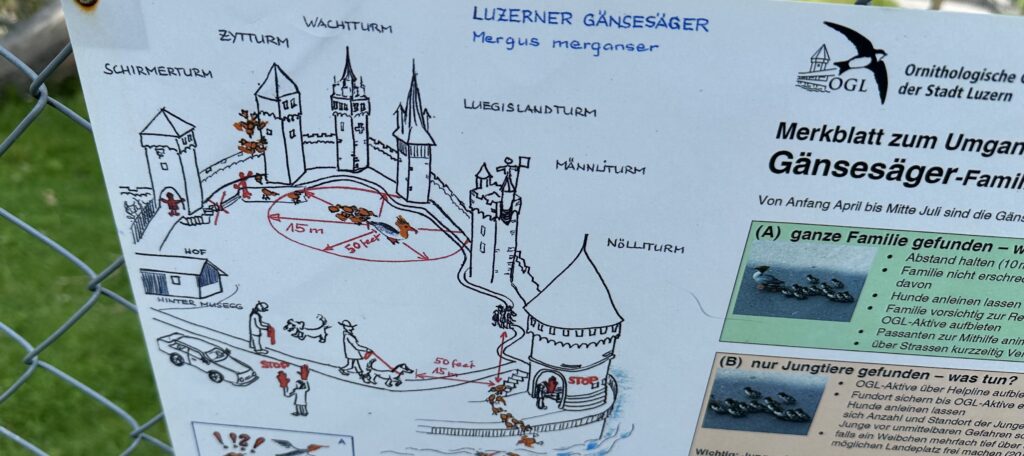 LUZERNER GÄNSESÄGER
Mergus merganser
WACHTTURM
ZYTTURM
SCHIRMERTURM
LUEGISLANDTURM
MÄNNLITURM
NÖLLITURM
15 m
50 feet
HOF
HINTER MUSEGG
STOP
50 feet
15 m
STOP
!?!
A
OGL
Ornithologische
der Stadt Luzern
Merkblatt zum
Gänsesäger-
Von Anfang April bis Mitte Juli sind die
(A) ganze Familie gefunden –
• Abstand halten (10
• Familie nicht
davon
• Hunde anleinen lassen
• Familie vorsichtig zur
OGL-Aktive aufbieten
• Passanten zur Mithilfe
• über Strassen kurzzeitig
(B) nur Jungtiere gefunden – was tun?
• OGL-Aktive über Helpline
• Fundort sichern bis OGL-Aktive
Hunde anleinen lassen
sich Anzahl und Standort der
Junge vor unmittelbaren Gefahren
• falls ein Weibchen mehrfach tief über
möglichen Landeplatz frei machen
Wichtig: